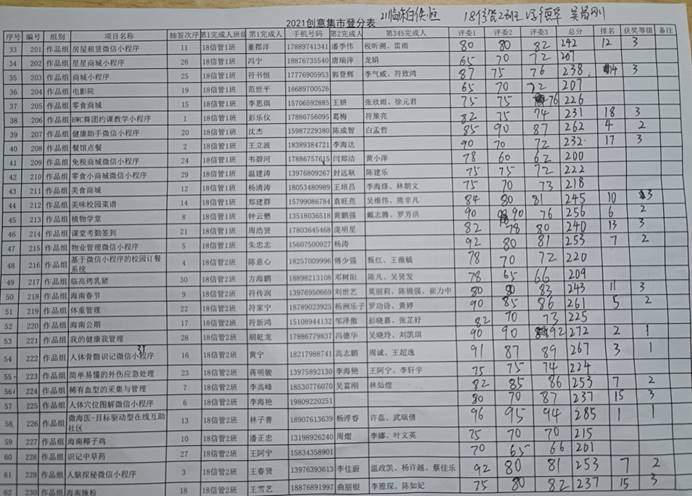 2021创意集市登分表
序号 编号 作品组 项目名称 抽签次序 第1完成人班级 第1完成人 手机号码 第2完成人 第345完成人 评委1 评委2 评委3 总分 排名 获奖等级 备注
33 201 作品组 房屋租赁微信小程序 11 18信管1班 董都洋 17889741341 潘季伟 80 80 82 242 12 3
34 202 作品组 星星商城小程序 26 18信管1班 冯宁 18876735540 唐瑞泽 龙娟 65 70 72 207
35 203 作品组 商城小程序 25 18信管1班 符书恒 17776905953 郭登辉 李气威、符致鸿 87 75 76 238 14 3
36 204 作品组 电影院 19 18信管1班 范世平 16689700526 65 70 72 207
37 205 作品组 零食商城 15 18信管1班 李思琪 15706592885 王妍 张欣雨、徐元君 75 75 76 226
38 206 作品组 HWC舞团约课教学小程序 1 18信管1班 彭乐仪 17886756095 葛梅 符策亮 82 75 74 231 18 3
39 207 作品组 健康助手微信小程序 20 18信管1班 沈杰 15987229380 陈成智 白孟哲 85 90 87 262 4 2
40 208 作品组 餐馆点餐 2 18信管1班 王立波 18389384721 李海达 90 70 72 232 17 3
41 209 作品组 免税商城微信小程序 24 18信管1班 韦碧河 闫郑洁 黄小萍 78 60 62 200
42 210 作品组 零食小商城微信小程序 29 18信管1班 温建涛 13976809267 封远耿 陈建乐 75 75 72 222
43 211 作品组 美食商城 12 18信管1班 杨清涛 18053480989 王培昌 李海烽、林朝文 75 70 73 218
44 212 作品组 美味校园菜谱 14 18信管1班 郑建群 15799086784 袁旺亮 吴维伟、熊非凡 84 80 81 245 10 3
45 213 作品组 植物学堂 8 18信管1班 钟云懋 13518036518 黄鹏强 戴志腾、罗芳洪 90 90 76 256 6 2
46 214 作品组 课堂考勤签到 21 18信管1班 周浩贤 17803645468 庞明星 82 78 80 240 13 3
47 215 作品组 物业管理微信小程序 5 18信管1班 朱忠志 15607500927 杨涛 92 80 81 253 7 2
48 216 作品组 基于微信小程序的校园订餐系统 4 18信管2班 陈童心 18257009996 傅少强 甄红、王薇毓 78 70 72 220
49 217 作品组 临高烤乳猪 30 18信管2班 方海鹏 18898213108 邓树阳 陈凡、吴贤发 78 65 66 209
50 218 作品组 海南春节 9 18信管2班 符传润 13976950669 刘世艺 莫丽莉、陈锏强、崔力中 80 80 83 243 11 3
51 219 作品组 体重管理 22 18信管2班 符家宁 18789023925 杨洲乐子 罗动诗、黄婷 90 85 86 261 5 2
52 220 作品组 海南公期 17 18信管2班 符新鸿 15108944132 邹泽傲 彭晓慕、张芷妤 82 70 73 225
53 221 作品组 我的健康我管理 28 18信管2班 胡虹龙 17886779837 冯德华 吴晓玲、刘凯琪 90 90 92 272 2 1
54 222 作品组 人体骨骼识记微信小程序 16 18信管2班 黄宁 18217988741 高志鹏 周诚、王超逸 91 87 89 267 3 1
55 223 作品组 简单易懂的外伤应急处理 23 18信管2班 蒋明骏 13975892130 李海艳 王阿宁、李轩宇 75 75 74 224
56 224 作品组 稀有血型的采集与管理 7 18信管2班 李高峰 18530776070 吴富刚 林灿煌 82 85 86 253 7 2
57 225 作品组 人体穴位图解微信小程序 6 18信管2班 李海艳 19809220251 80 70 87 237 15 3
58 226 作品组 微海医-目标驱动型在线互助社区 13 18信管2班 林子善 18907613639 杨渟睿 许磊、武瑞倩 96 95 94 285 1 1
59 227 作品组 海南椰子鸡 10 18信管2班 潘正忠 13198926240 周熠 李娜、叶文英 75 70 70 215
60 228 作品组 识记中草药 27 18信管2班 王阿宁 15834358901 70 65 66 201
61 229 作品组 人脑探秘微信小程序 3 18信管2班 王春贤 13976393613 李佳蔚 温政凯、杨许越、蔡佳乐 92 80 81 253 7 2
62 230 作品组 海南腌粉 18 18信管2班 王雪艺 18876891997 曲丽银 李雅琛、陈如妃 75 80 82 237 15 3